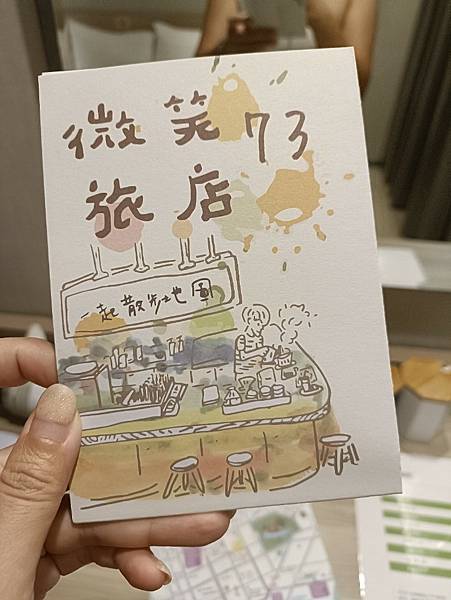 微笑73
旅店
一起散步地圖